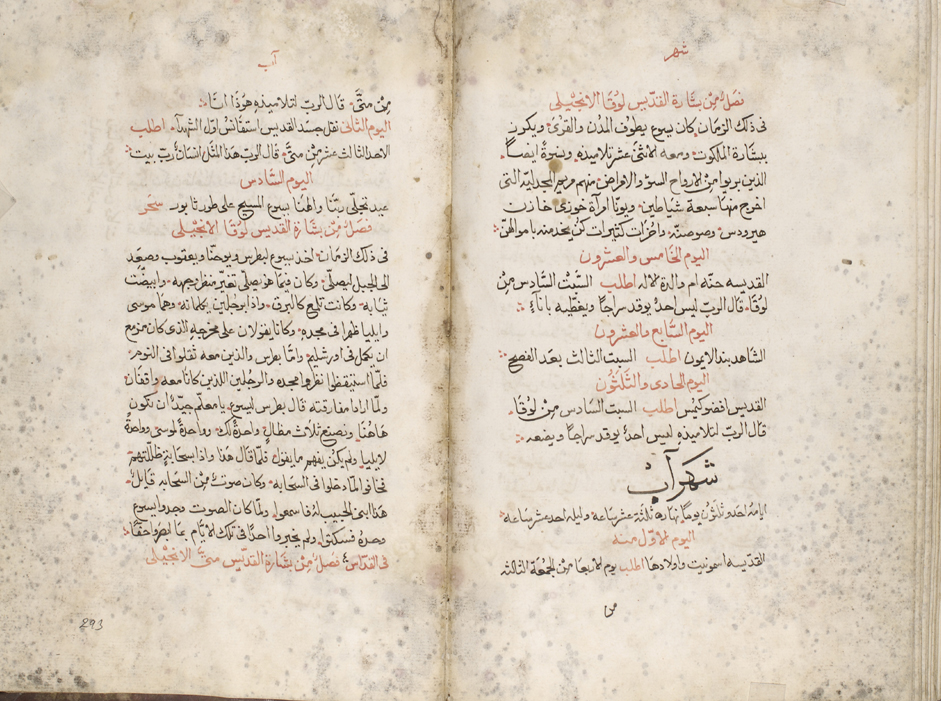 شهر
فصل من بشارة القديس لوقا الانجيلي
في ذلك الزمان كان يسوع يطوف المدن والقرى ويكرز
ببشارة الملكوت ومعه الاثنى عشر تلاميذه ونسوة ايضا
الذين بريوا من الارواح السوء والامراض منهم مريم المجدلية التي
اخرج منها سبعة شياطين ويونا امرأة خوزي خازن
هيرودس وصوصنه واخرات كثيرات كن يخدمنه باموالهن
اليوم الخامس والعشرون
القديسه حنه ام والدة الاله اطلب السبت السادس من
لوقا قال الرب ليس احد يوقد سراجا ويغطيه باناء
اليوم السابع والعشرون
الشاهد بندلايمون اطلب السبت الثالث بعد الفصح
اليوم الحادي والثلثون
القديس افضوكيمس اطلب السبت السادس من لوقا
قال الرب لتلاميذه ليس احد يوقد سراجا ويضعه
شهر آب
ايامه احد وثلثون يوما نهاره ثلثة عشر ساعة وليله احد عشر ساعة
اليوم الاول منه
القديسه اسمونيت واولادها اطلب يوم الاربعا من الجمعة الثالثه
من
آب
من متى قال الرب لتلاميذه هوذا انا
اليوم الثاني نقل جسد القديس استفانس اول الشهدآء اطلب
الاحد الثالث عشر من متى قال الرب هذا المثل انسان رب بيت
اليوم السادس
عيد تجلي ربنا والهنا يسوع المسيح على طور ثابور سحر
فصل من بشارة القديس لوقا الانجيلي
في ذلك الزمان اخذ يسوع لبطرس ويوحنا ويعقوب وصعد
الى الجبل ليصلي وكان فيما هو يصلي تغير منظر وجهه وابيضت
ثيابه وكانت تلمع كالبرق واذا برجلين يكلمانه وهما موسى
وايليا ظهرا في مجده وكانا يقولان على مخرجه الذي كان مزمع
ان يكمل في اورشليم واما بطرس والذين معه ثقلوا في النوم
فلما استيقظوا نظروا مجده والرجلين اللذين كانا معه واقفان
ولما ارادا مفارقته قال بطرس ليسوع يا معلم جيد ان نكون
هاهنا ونصنع ثلاث مظال واحدة لك وواحدة لموسى وواحدة
لايليا ولم يكن يفهم ما يقول فلما قال هذا واذا سحابة ظللتهم
فخافوا لما دخلوا في السحابه وكان صوت من السحابه قايل
هذا ابني الحبيب له فاسمعوا ولما كان الصوت وجدوا يسوع
وحده فسكتوا ولم يخبروا احدا في تلك الايام بما ابصروا حقا
في القداس فصل من بشارة القديس متى الانجيلي
293